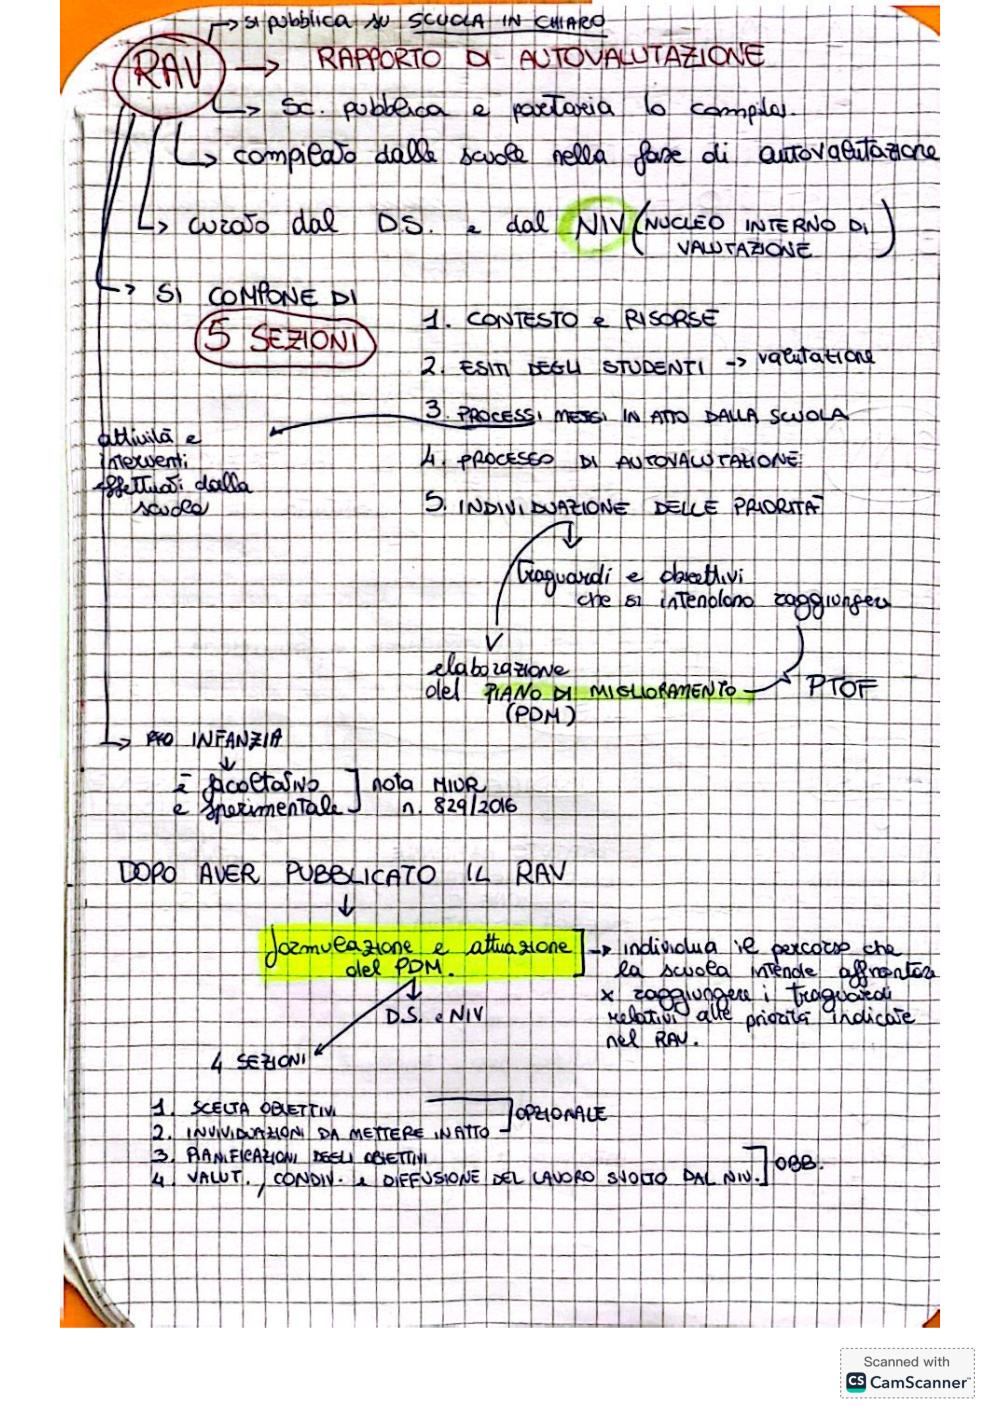 → si pubblica su SCUOLA IN CHIARO
RAV → RAPPORTO DI AUTOVALUTAZIONE
→ Sc. pubblica e paritaria lo compila.
→ compilato dalle scuole nella fase di autovalutazione
→ curato dal D.S. e dal NIV (NUCLEO INTERNO DI VALUTAZIONE)
→ SI COMPONE DI
5 SEZIONI
1. CONTESTO e RISORSE
2. ESITI DEGLI STUDENTI -> valutazione
3. PROCESSI MESSI IN ATTO DALLA SCUOLA
attività e
interventi
effettuati dalla
scuola
4. PROCESSO DI AUTOVALUTAZIONE
5. INDIVIDUAZIONE DELLE PRIORITÀ
Traguardi e obiettivi
che si intendono raggiungere
elaborazione
del PIANO DI MIGLIORAMENTO → PTOF
(PDM)
→ INFANZIA
è facoltativo ] nota MIUR
e sperimentale ] n. 829/2016
DOPO AVER PUBBLICATO IL RAV
formulazione e attuazione
del PDM.
→ individua il percorso che
la scuola intende affrontare
x raggiungere i traguardi
relativi alle priorità indicate
nel RAV.
D.S. e NIV
4 SEZIONI
1. SCELTA OBIETTIVI
2. INVIVIDUAZIONI DA METTERE IN ATTO ] OPZIONALE
3. PIANIFICAZIONI DEGLI OBIETTIVI
4. VALUT., CONDIV. e DIFFUSIONE DEL LAVORO SVOLTO DAL NIV. ] OBB.
Scanned with
CS CamScanner